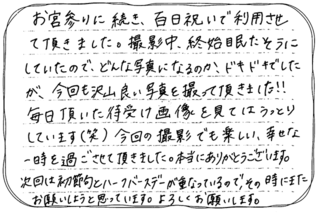 お宮参りに続き、百日祝いで利用させ
て頂きました。撮影中、終始眠たそうに
していたので、どんな写真になるのか、ドキドキでした
が、今回も沢山良い写真を撮って頂きました!!
毎日頂いた待受け画像を見てはうっとり
しています(笑)今回の撮影でも楽しい、幸せな
一時を過ごさせて頂きました。本当にありがとうございます。
次回は初節句とハーフバースデーが重なっているので、その時にまた
お願いしようと思っています。よろしくお願いします。